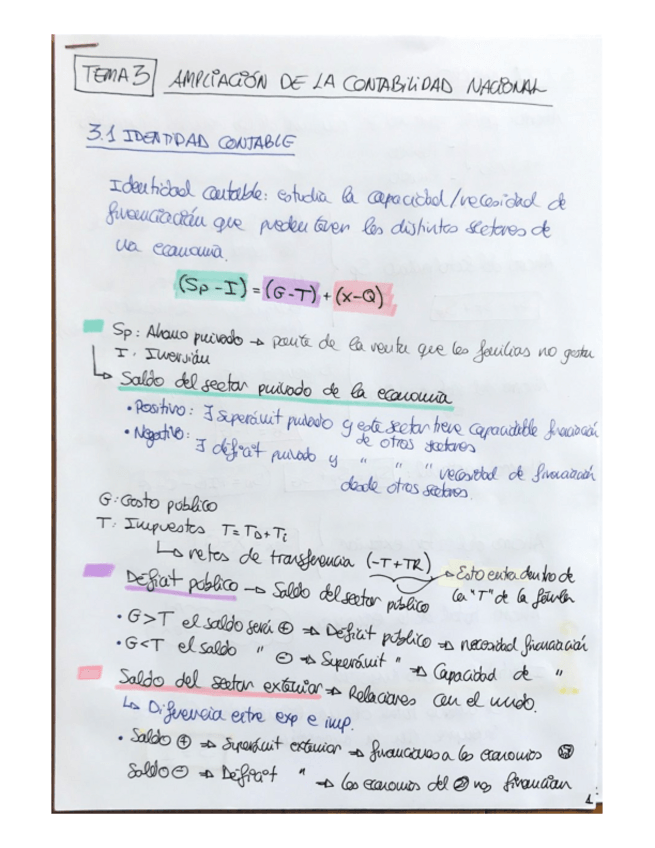 TEMA 3 AMPLIACIÓN DE LA CONTABILIDAD NACIONAL
3.1 IDENTIDAD CONTABLE
Identidad contable: estudia la capacidad/necesidad de
financiación que pueden tener los distintos sectores de
una economía.
(Sp - I) = (G - T) + (X - Q)
Sp: Ahorro privado → parte de la renta que las familias no gastan
I: Inversión
↳ Saldo del sector privado de la economía
• Positivo: ∃ superávit privado y este sector tiene capacidad de financiación
de otros sectores
• Negativo: ∃ déficit privado y " " " necesidad de financiación
desde otros sectores.
G: Gasto público
T: Impuestos T = TD + Ti
↳ netos de transferencia (-T + TR) → Esto entra dentro de
la "T" de la fórmula
Déficit público → Saldo del sector público
• G > T el saldo será ⊕ ⇒ Déficit público ⇒ necesidad financiación
• G < T el saldo " ⊖ ⇒ Superávit " ⇒ Capacidad de "
Saldo del sector exterior ⇒ Relaciones con el mundo.
↳ Diferencia entre exp e imp.
• Saldo ⊕ ⇒ Superávit exterior ⇒ financiamos a las economías
Saldo ⊖ ⇒ Déficit " ⇒ las economías del nos financian
1